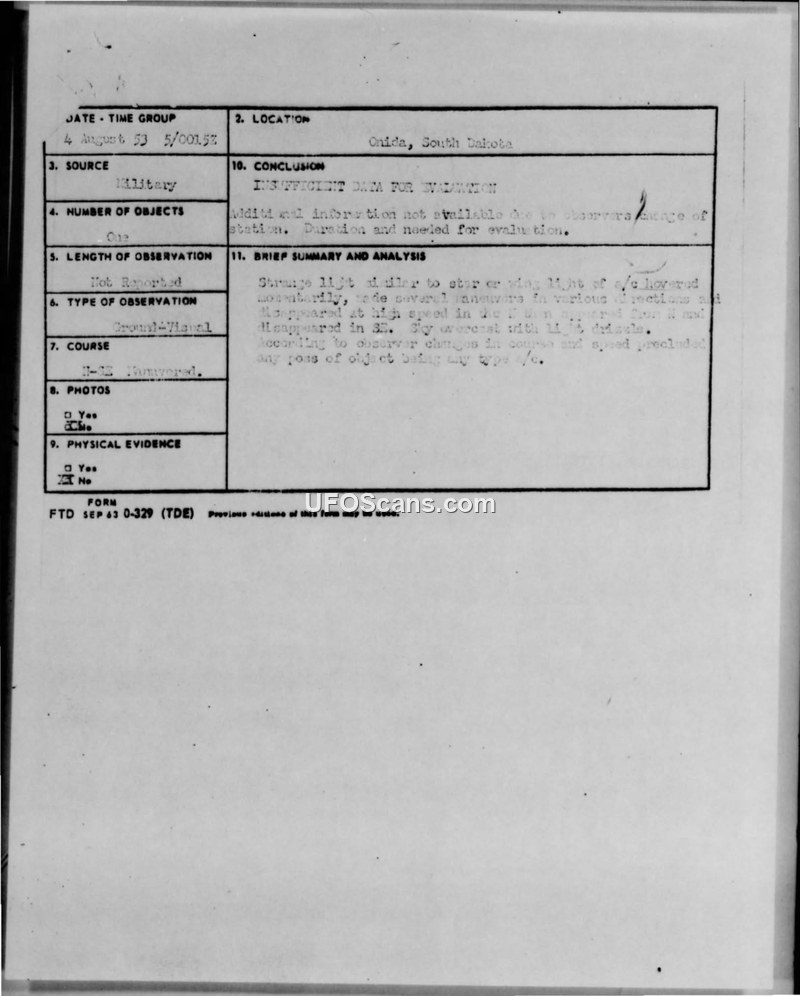 DATE - TIME GROUP
4 August 53 5/0015Z
2. LOCATION
Onida, South Dakota
3. SOURCE
Military
10. CONCLUSION
INSUFFICIENT DATA FOR EVALUATION
Additional information not available due to observers change of
station. Duration and needed for evaluation.
4. NUMBER OF OBJECTS
One
5. LENGTH OF OBSERVATION
Not Reported
11. BRIEF SUMMARY AND ANALYSIS
Strange light similar to star or wing light of a/c hovered
momentarily, made several maneuvers in various directions and
disappeared at high speed in the N then appeared from N and
disappeared in SE. Sky overcast with light drizzle.
According to observer changes in course and speed precluded
any poss of object being any type a/c.
6. TYPE OF OBSERVATION
Ground-Visual
7. COURSE
N-SE Maneuvered.
8. PHOTOS
□ Yes
No
9. PHYSICAL EVIDENCE
□ Yes
No
FORM
FTD SEP 63 0-329 (TDE) Previous editions of this form may be used.
UFOScans.com